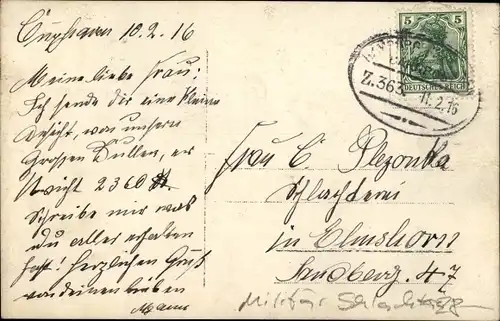 Cuxhaven 10.2.16
Meine liebe Frau!
Ich sende dir eine kleine
von unsern
Großen Bullen, er
Wicht 2360 ℔.
Schreibe mir was
du alles erhalten
hast! Herzlichen Gruß
von deinem lieben
Mann
5 5
DEUTSCHES REICH
Z.363 11.2.16
Frau C. Plezonka
Schlachterei
in Elmshorn
Sandberg 47
Militär